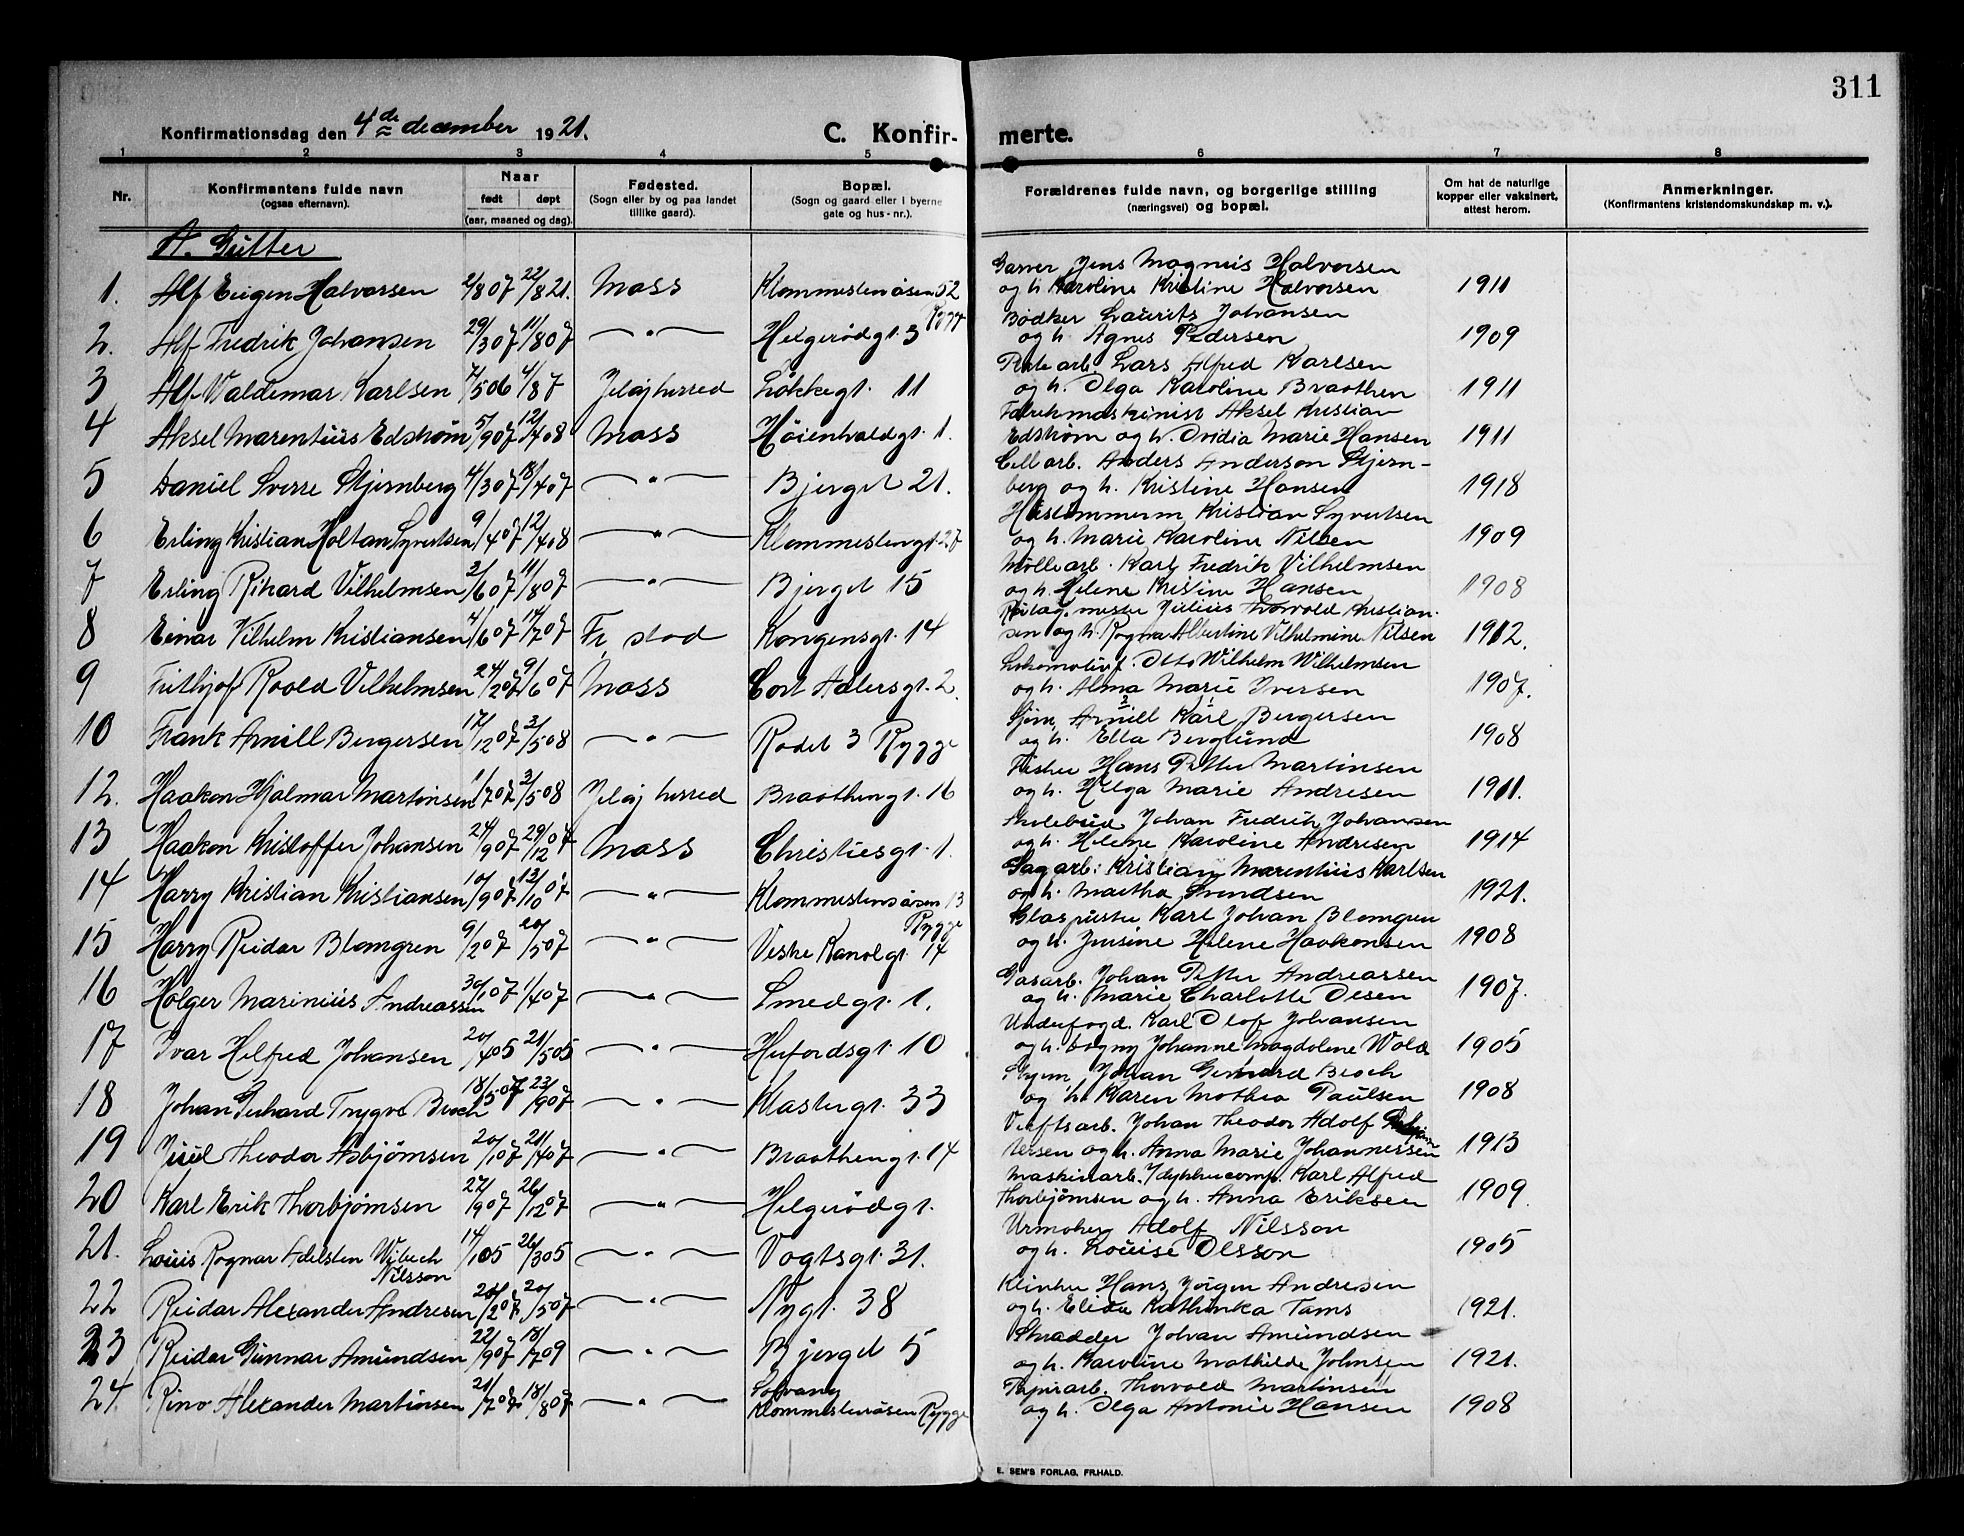 311
Konfirmationsdag den 4de december 1921.
C. Konfirmerte.
1 2 3 4 5 6 7 8
Nr.
Konfirmantens fulde navn
(ogsaa efternavn).
Naar
født døpt
(aar, maaned og dag).
Fødested.
(Sogn eller by og paa landet
tillike gaard).
Bopæl.
(Sogn og gaard eller i byerne
gate og hus-nr.).
Forældrenes fulde navn, og borgerlige stilling
(næringsvei) og bopæl.
Om hat de naturlige
kopper eller vaksinert,
attest herom.
Anmerkninger.
(Konfirmantens kristendomskundskap m. v.).
A. Gutter
1. Alf Eugen Halvorsen 2/8 07 22/8 21. Moss Klommestensåsen 52 Rygge
Garver Jens Magnus Halvorsen
og h. Karoline Kristine Halvorsen 1911
2. Alf Fredrik Johansen 29/3 07 11/8 07 — " — Helgerødgt. 3
Bødker Laurits Johansen
og h. Agnes Pedersen 1909
3 Alf Valdemar Karlsen 7/5 06 4/8 7 Jeløy herred Løkkegt. 11
arb. Lars Alfred Karlsen
og h. Olga Karoline Braathen 1911
4 Aksel Marentius Edstrøm 5/9 07 12/4 08 Moss Høienhaldgt. 1.
Fabrikmaskinist Aksel Kristian
Edstrøm og h. Ovidia Marie Hansen 1911
5 Daniel Sverre Stjernberg 4/3 07 18/4 07 — " — Bjerget 21.
Cell. arb. Anders Anderson Stjern-
berg og h. Kristine Hansen 1918
6 Erling Kristian Holtan Syvertsen 9/4 07 12/4 08 — " — Klommestengt. 27
Hustømmerm Kristian Syvertsen
og h. Marie Karoline Nilsen 1909
7 Erling Rikard Vilhelmsen 2/6 07 11/8 07 — " — Bjerget 15
Møllearb. Karl Fredrik Vilhelmsen
og h. Helene Kristine Hansen 1908
8 Einar Vilhelm Kristiansen 4/6 07 14/7 07 Fr. stad Kongensgt. 14
mester Julius Thorvald Kristian-
sen og h. Ragna Albertine Vilhelmine Nilsen 1912.
9 Frithjof Roald Vilhelmsen 24/2 07 9/6 07 Moss Cort Adlersgt. 2.
Lokomotivf. Otto Wilhelm Wilhelmsen
og h. Alma Marie Iversen 1907.
10 Frank Arnill Bergersen 17/12 07 3/5 08 — " — Rødet 3 Rygge
Sjøm. Arnill Karl Bergersen
og h. Ella Berglund 1908
12. Haakon Hjalmar Martinsen 1/7 07 3/5 08 Jeløy herred Braathengt. 16
Fisker Hans Petter Martinsen
og h. Helga Marie Andresen 1911.
13 Haakon Kristoffer Johansen 24/9 07 29/12 07 Moss Christiesgt. 1.
Skolebud Johan Fredrik Johansen
og h. Helene Karoline Andresen 1914
14 Harry Kristian Kristiansen 10/9 07 13/10 07 — " — Klommestensåsen 13 Rygge
Sagarb. Kristian Marentius Karlsen
og h. Martha Svendsen 1921.
15 Harry Reidar Blomgren 9/2 07 20/5 07 — " — Vestre Kanalgt. 14
Glaspuster Karl Johan Blomgren
og h. Jensine Helene Haakonsen 1908
16 Holger Marinius Andreassen 30/1 07 1/4 07 — " — Smedgt. 1.
Gasarb. Johan Petter Andreassen
og h. Marie Charlotte Olsen 1907.
17 Ivar Helfred Johansen 20/4 05 21/5 05 — " — 10
Underfogd. Karl Olof Johansen
og h. Dagny Johanne Magdalene Wold 1905
18 Johan Gerhard Trygve Bech 18/5 07 23/9 07 — " — Klostergt. 33
Johan Gerhard Bech
og h. Karen Mathea Paulsen 1908
19 Juul Theodor Asbjørnsen 20/1 07 21/4 07 — " — Braathengt. 14
Verftsarb. Johan Theodor Adolf
og h. Anna Marie Johannessen 1913
20 Karl Erik Thorbjørnsen 27/9 07 26/12 07 — " — Helgerødgt.
Maskinarb. Karl Alfred
Thorbjørnsen og h. Anna Eriksen 1909.
21. Louis Ragnar Adelsten Wibech Nilsson 14/1 05 26/3 05 — " — Vogtsgt. 31.
Urmaker Adolf Nilsson
og h. Louise Olsson 1905
22 Reidar Alexander Andresen 24/2 07 20/5 07 — " — Nygt. 38
Hans Jørgen Andresen
og h. Elida Kathinka Tams 1921.
23 Reidar Gunnar Amundsen 22/9 07 18/7 09 — " — Bjerget 5
Skrædder Johan Amundsen
og h. Karoline Mathilde Johnsen 1921.
24. Rino Alexander Martinsen 21/7 07 18/8 07 — " — Solvang
Klommestensåsen Rygge
Papirarb. Thorvald Martinsen
og h. Olga Antonie Hansen 1908
E. SEM'S FORLAG, FR.HALD.